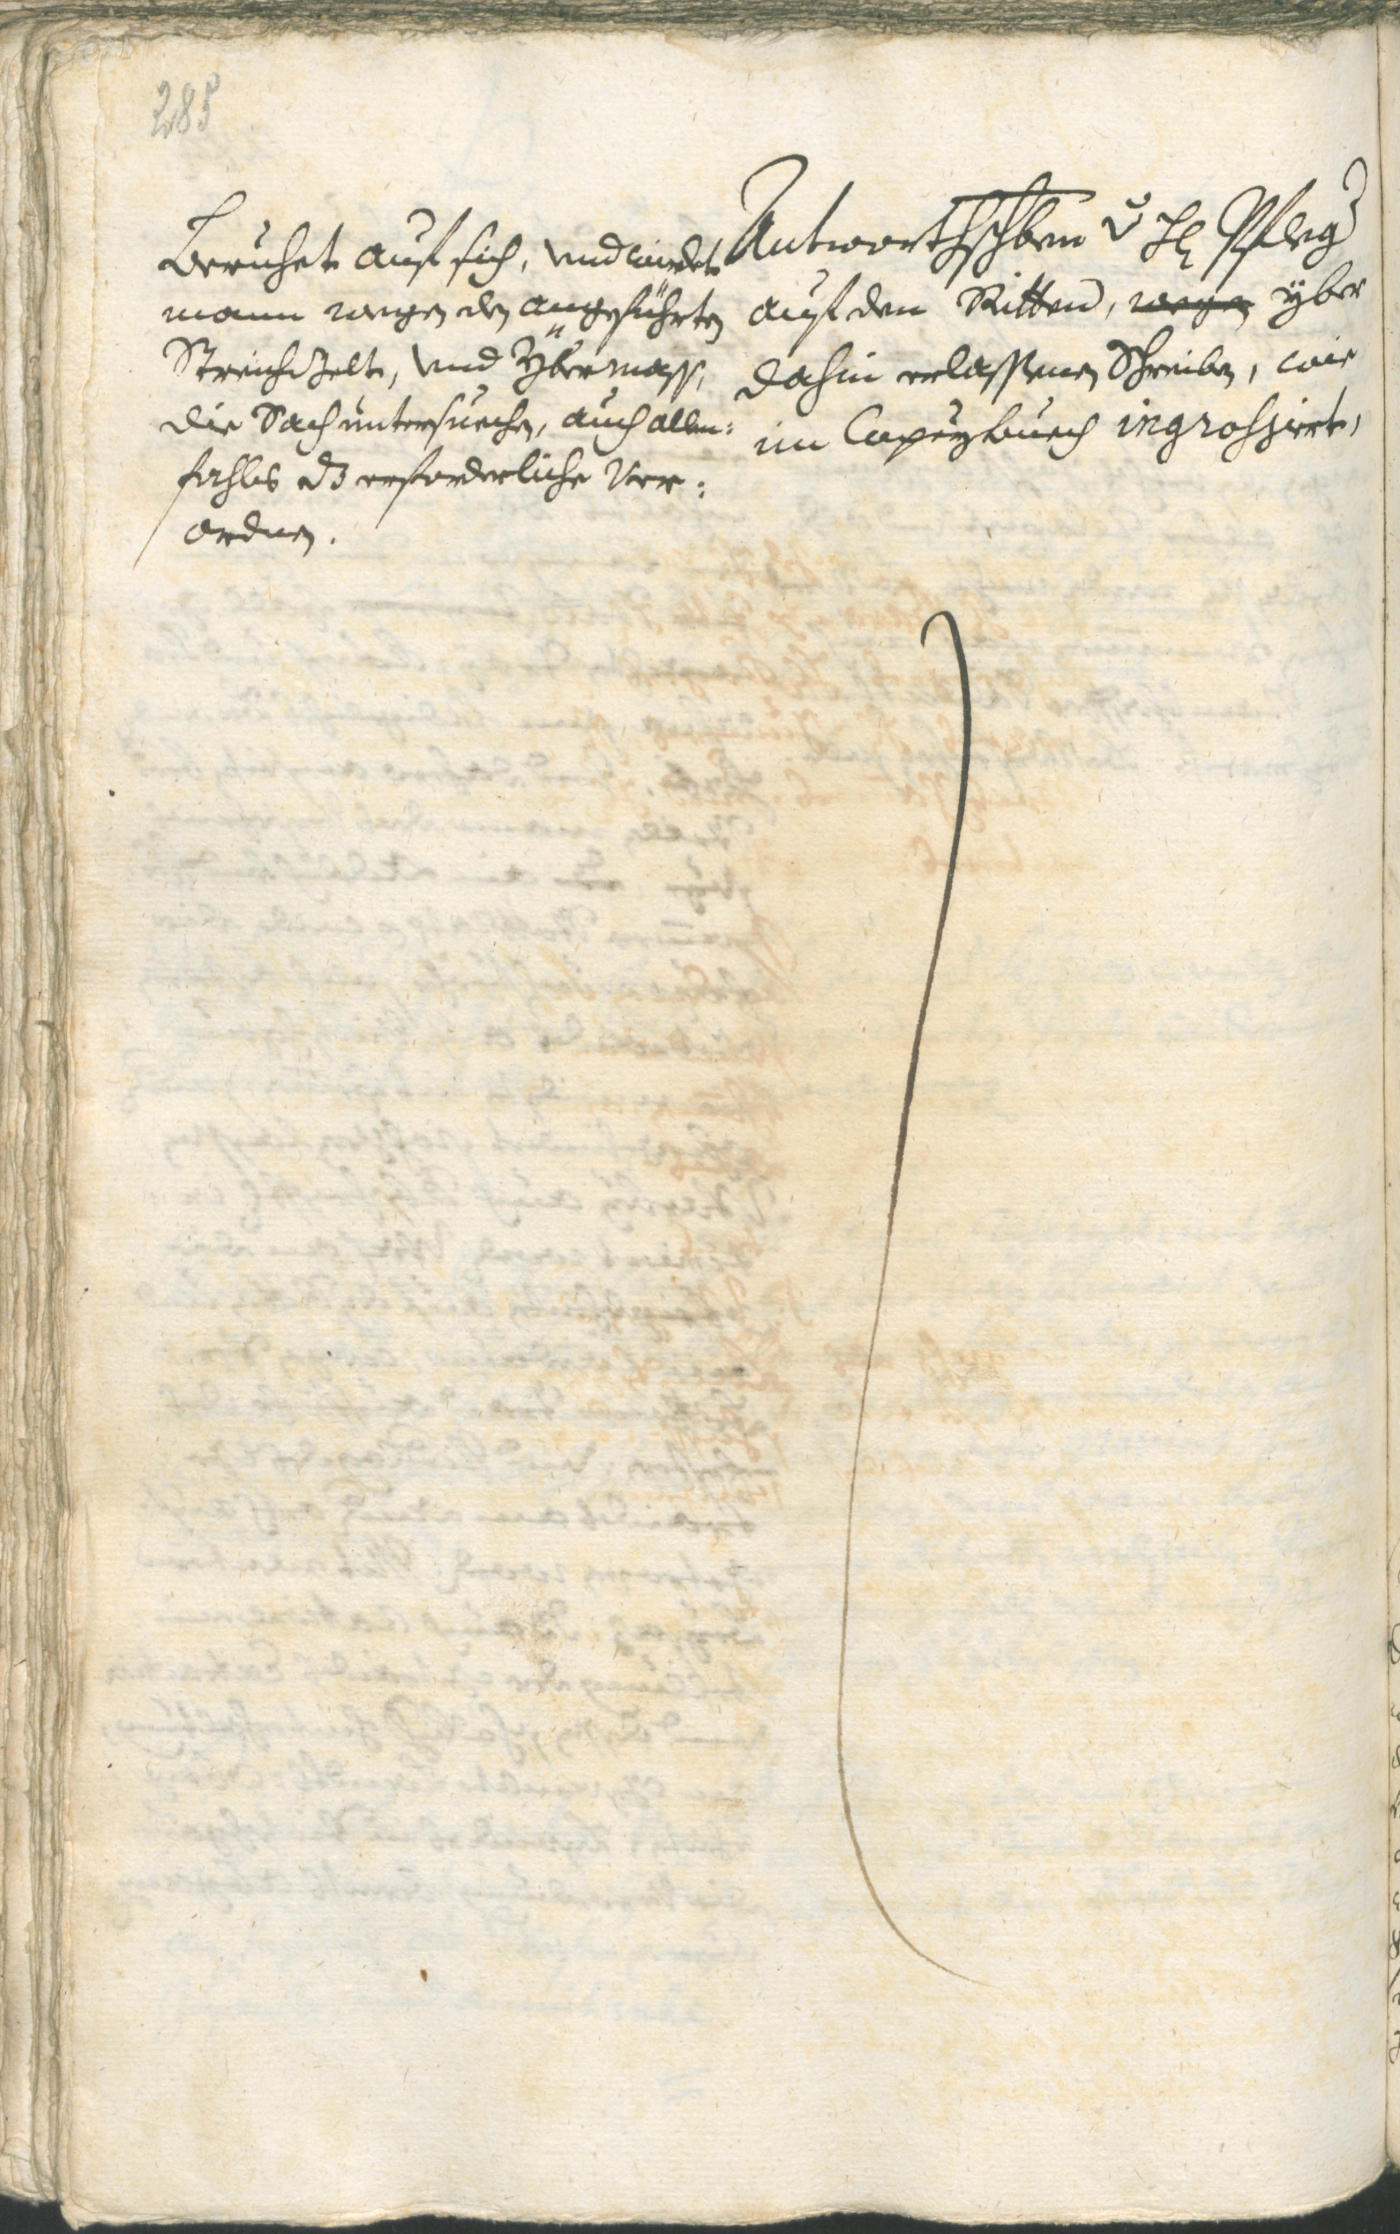 285
Beruhet auf sich, und wirdet
mann wegen der angeführten
Streich, und Ybermass,
die Sach untersuechen, auch allen:
fahls dz erforderliche Ver:
ordnen.
Antworthschben Pfleg
auf den Ritten, wegen yber
dahin erlassenen Schreiben, wie
im Copeybuech ingrossiert,